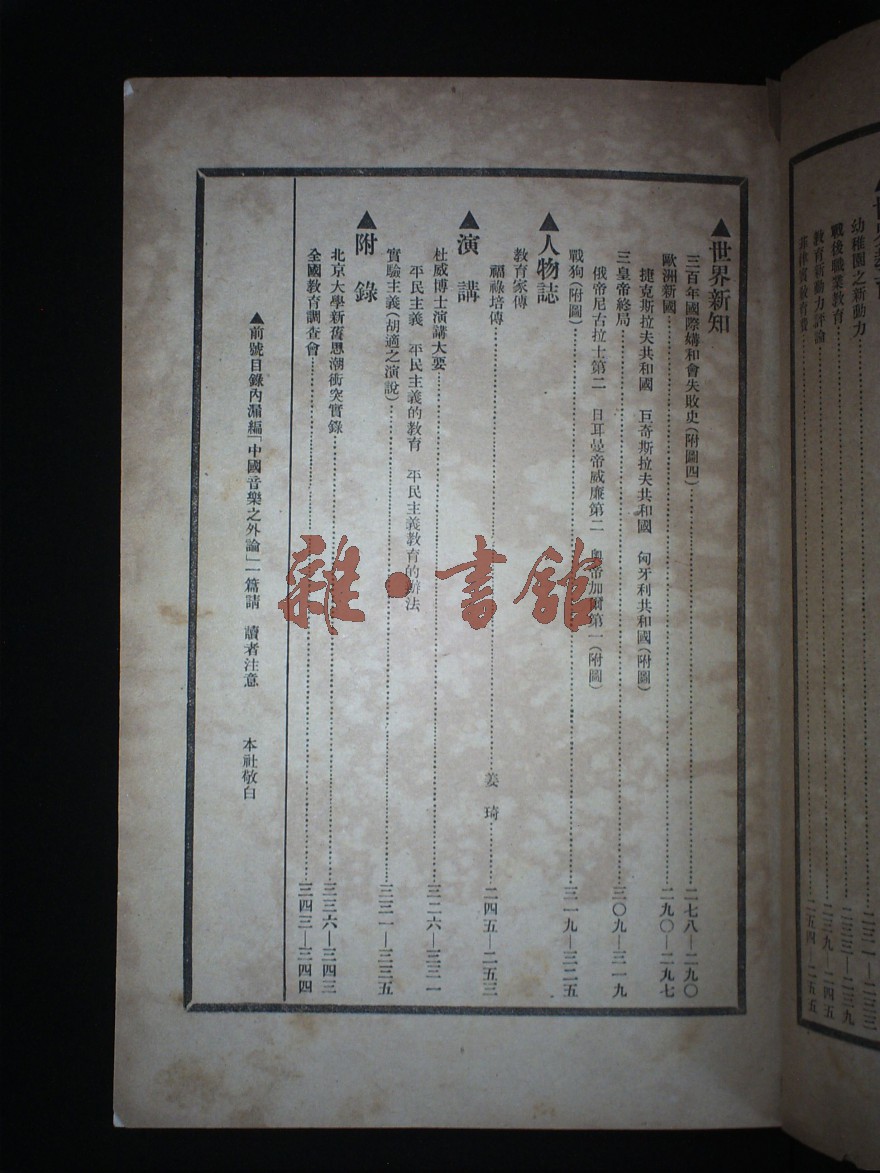 世界教育
幼稚園之新動力……二三一—二三三
戰後職業教育……二三三—二三九
教育新動力評論……二三九—二四五
菲律賓教育質……二五四—二五五
▲世界新知
三百年國際媾和會失敗史(附圖四)……二七八—二九〇
歐洲新國……二九〇—二九七
捷克斯拉夫共和國 巨奇斯拉夫共和國 匈牙利共和國(附圖)
三皇帝終局……三〇九—三一九
俄帝尼古拉士第二 日耳曼帝威廉第二 奧帝加爾第一(附圖)
戰狗(附圖)……三一九—三二五
▲人物誌
教育家傳
福祿培傳……姜琦……二四五—二五三
▲演講
杜威博士演講大要……三二六—三三一
平民主義 平民主義的教育 平民主義教育的辦法
實驗主義(胡適之演說)……三三一—三三五
▲附錄
北京大學新舊思潮衝突實錄……三三六—三四三
全國教育調查會……三四三—三四四
▲前號目錄內漏編「中國音樂之外論」一篇請 讀者注意 本社敬白
雜·書館